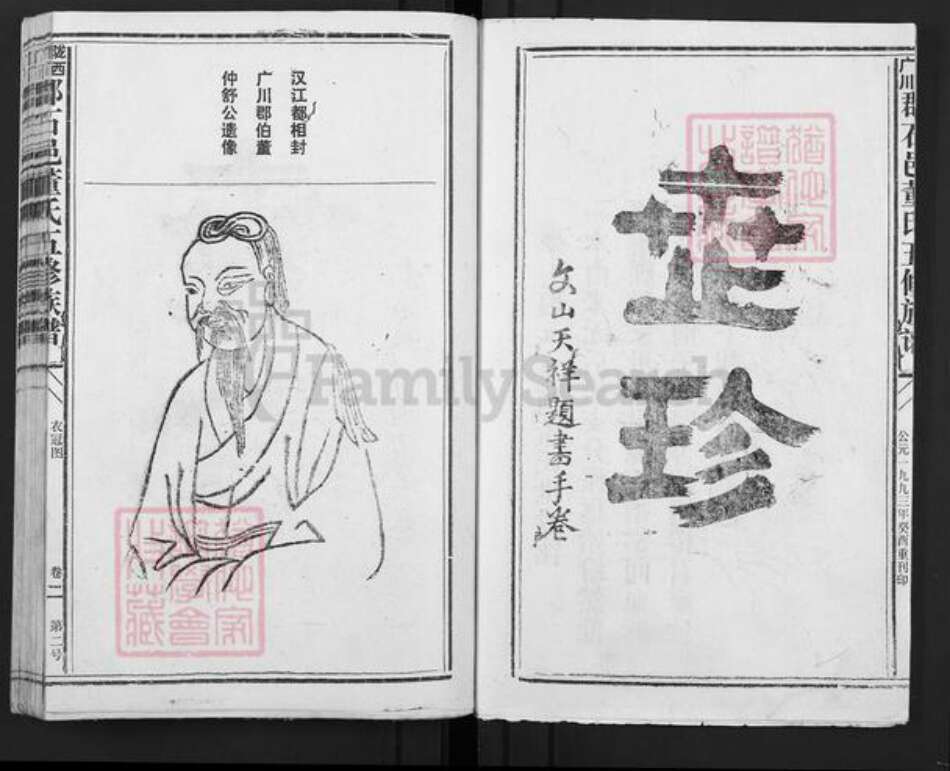 广川郡石邑董氏五修族谱
公元一九九三年癸酉重刊印
珍
文山天祥題書手卷
猶他家
譜學會
汉江都相封
广川郡伯董
仲舒公遗像
陇西郡石邑董氏五修族谱
衣冠图
卷一
第二号
猶他家
譜學會
FamilySearch